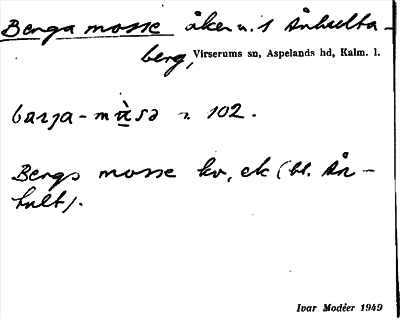 Berga mosse åker u. s Århulta-
berg, Virserums sn, Aspelands hd, Kalm. l.
barja - mùsə 102.
Bergs mosse kv, ek (bl. År-
hult).
Ivar Modéer 1949